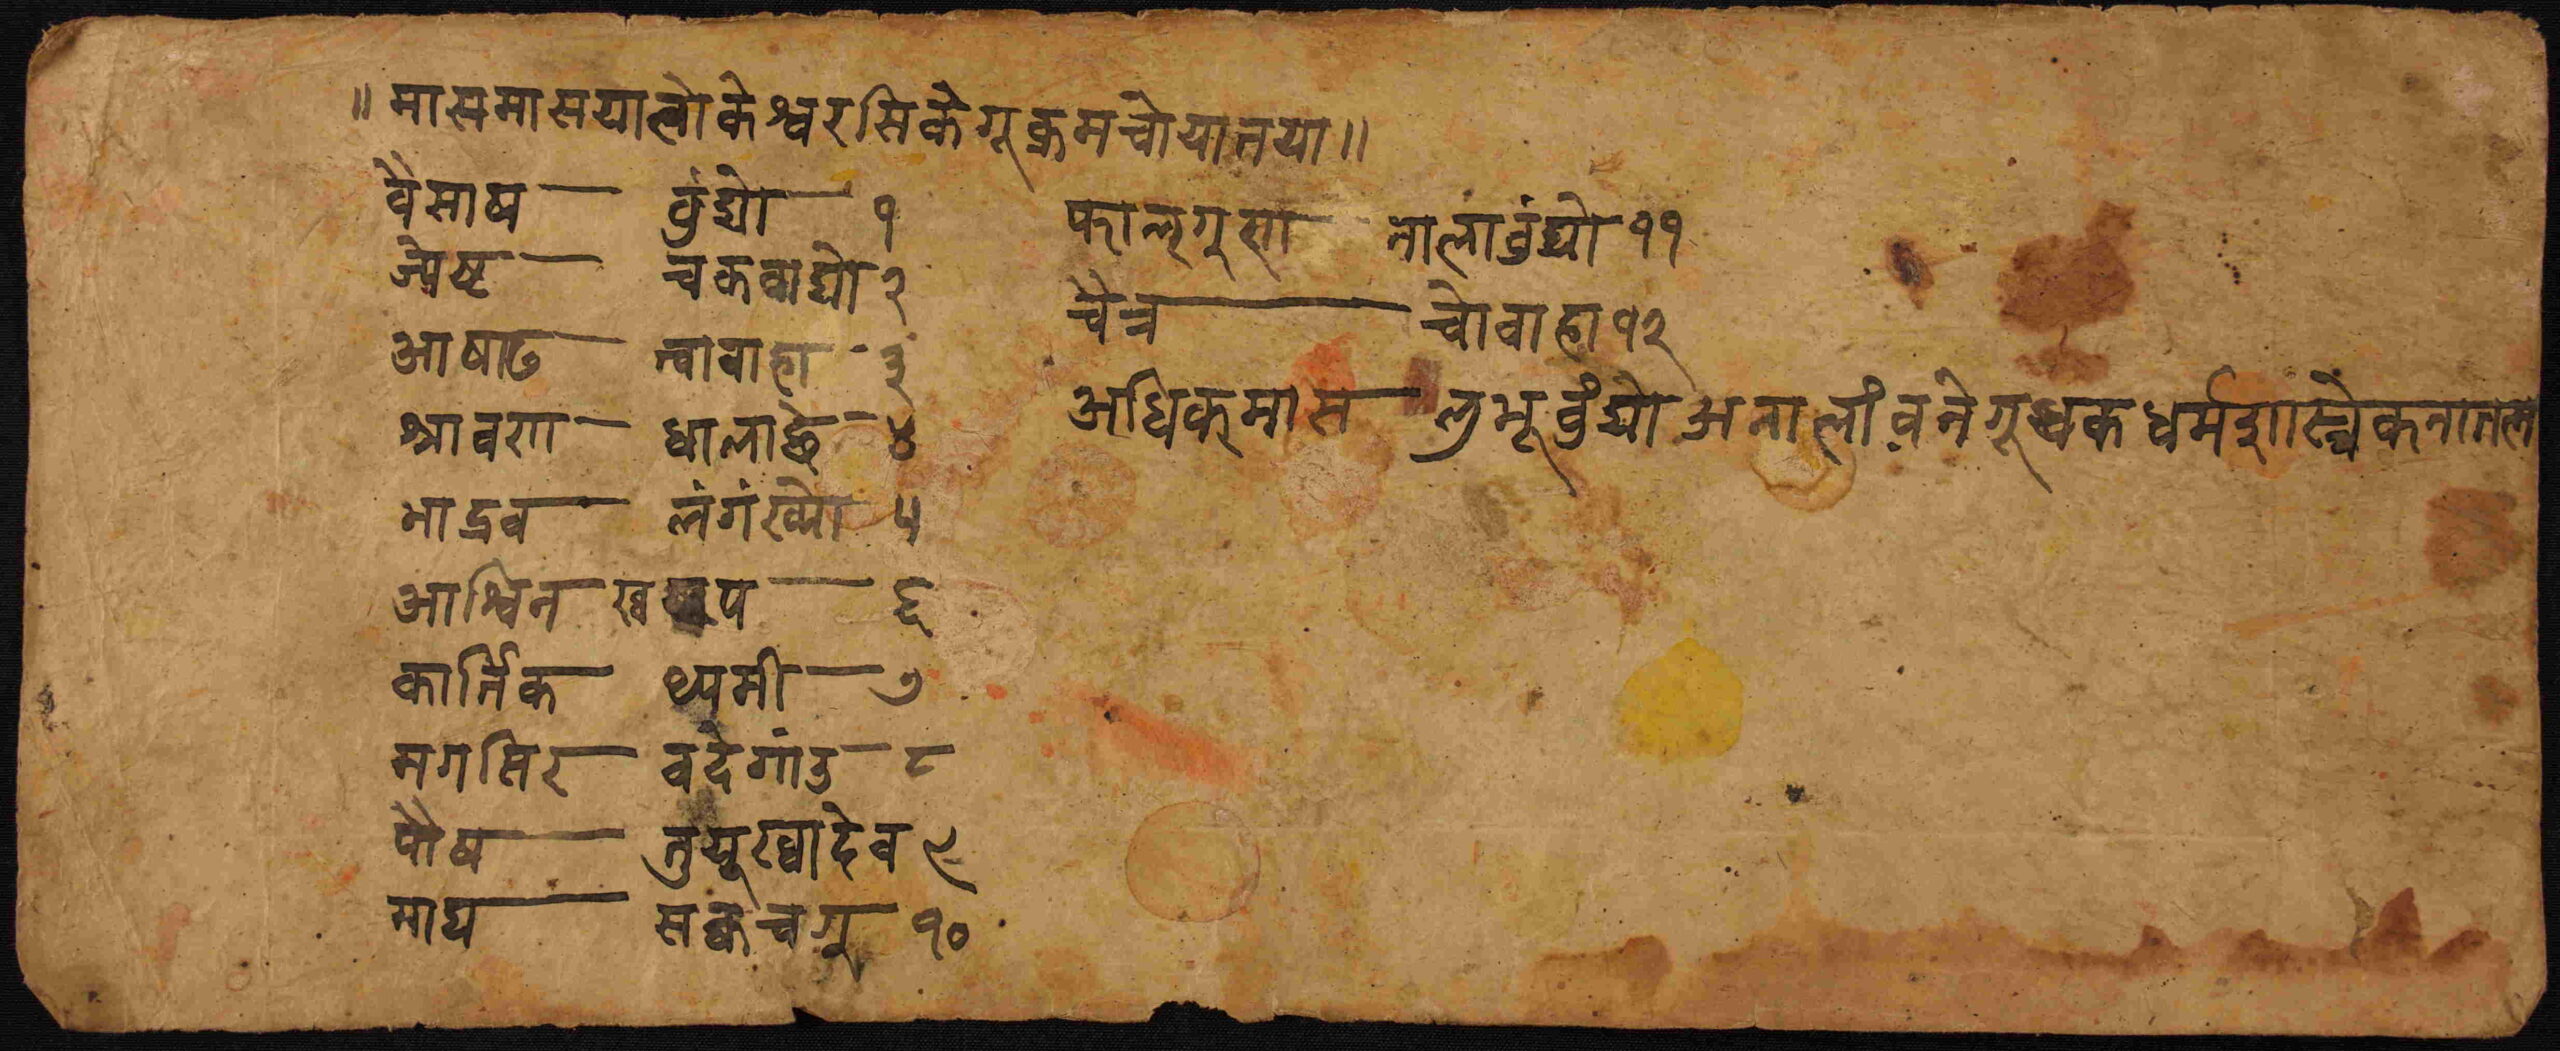 ॥ मासमासयालोकेश्वरसिकेगूक्रमचोयातया ॥
वैसाष — वुंद्यो — १
ज्येष्ट — चकवाद्यो २
आषाढ — त्वावाहा - ३
श्रावण — धालाछे - ४
भाद्रव — लंगंख्यो ५
आश्विन — ६
कार्तिक — थ्यमी — ७
मगसिर — वदेगांउ - ८
पौष — तुयूख्वादेव ९
माघ — सक्वचगू १०
फाल्गुण — नालावुंद्यो ११
चैत्र — चोवाहा १२
अधिकमास — लुभूवुंद्यो अनालीवनेगू धर्म